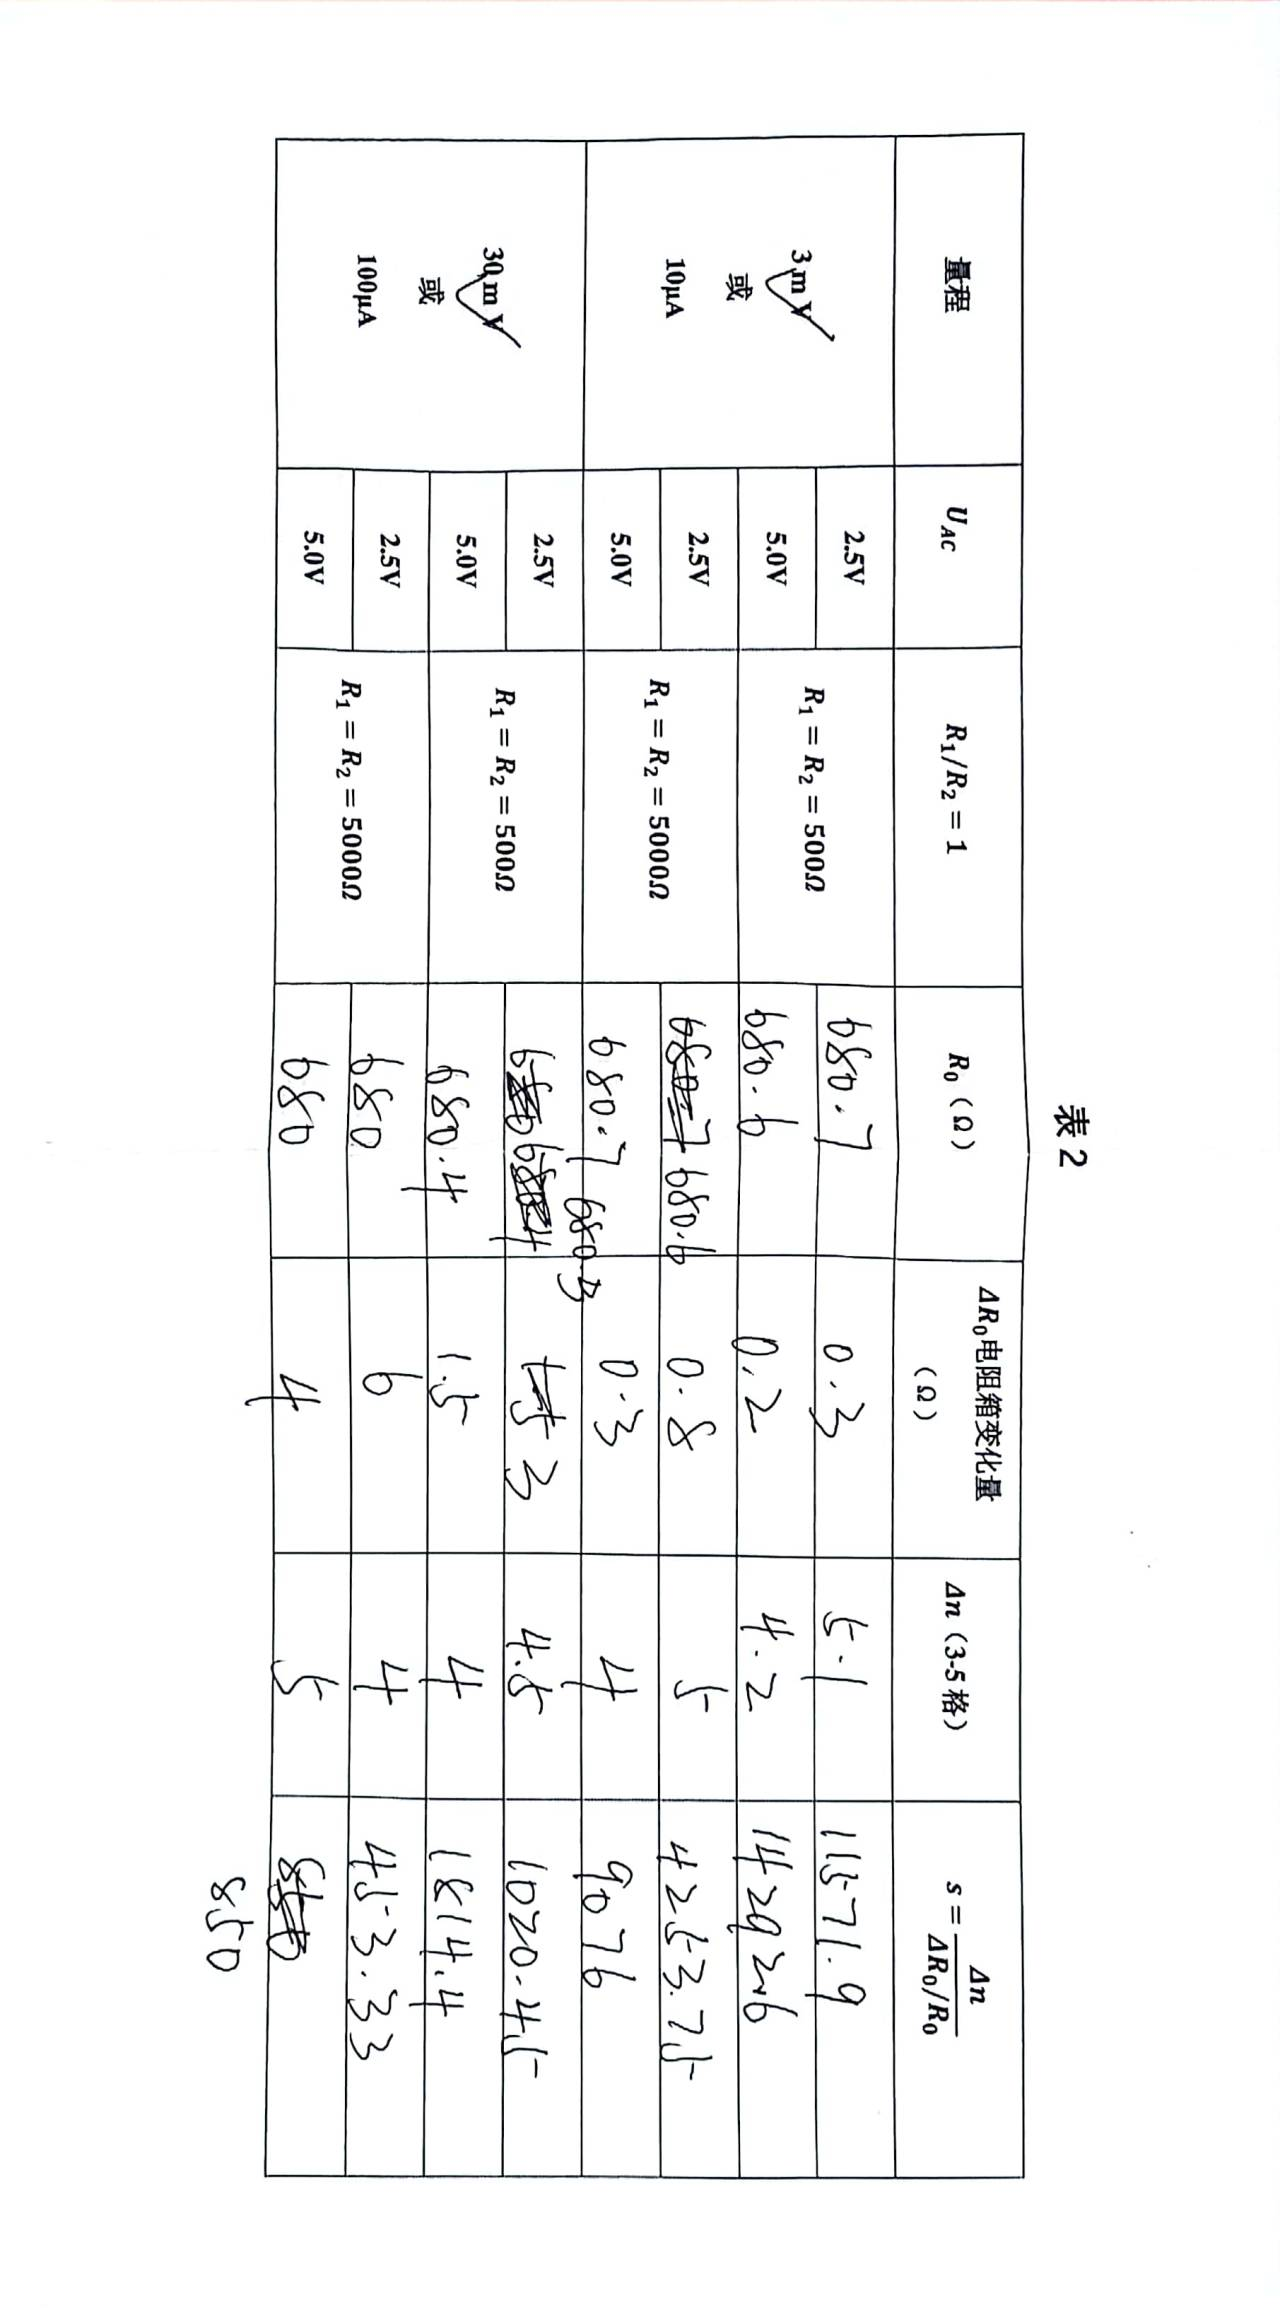 表 2
量程 U_AC R₁/R₂ = 1 R₀ (Ω) ΔR₀电阻箱变化量 (Ω) Δn (3-5 格) s = Δn / (ΔR₀/R₀)
3 mV 或 10μA
2.5V R₁ = R₂ = 500Ω 680.7 0.3 5.1 11571.9
5.0V 680.6 0.2 4.2 14292.6
2.5V R₁ = R₂ = 5000Ω 680.7 680.6 0.8 5 4253.75
5.0V 680.7 0.3 4 9076
30 mV 或 100μA
2.5V R₁ = R₂ = 500Ω 680.3 3 4.5 1020.45
5.0V 680.4 1.5 4 1814.4
2.5V R₁ = R₂ = 5000Ω 680 6 4 453.33
5.0V 680 4 5 850